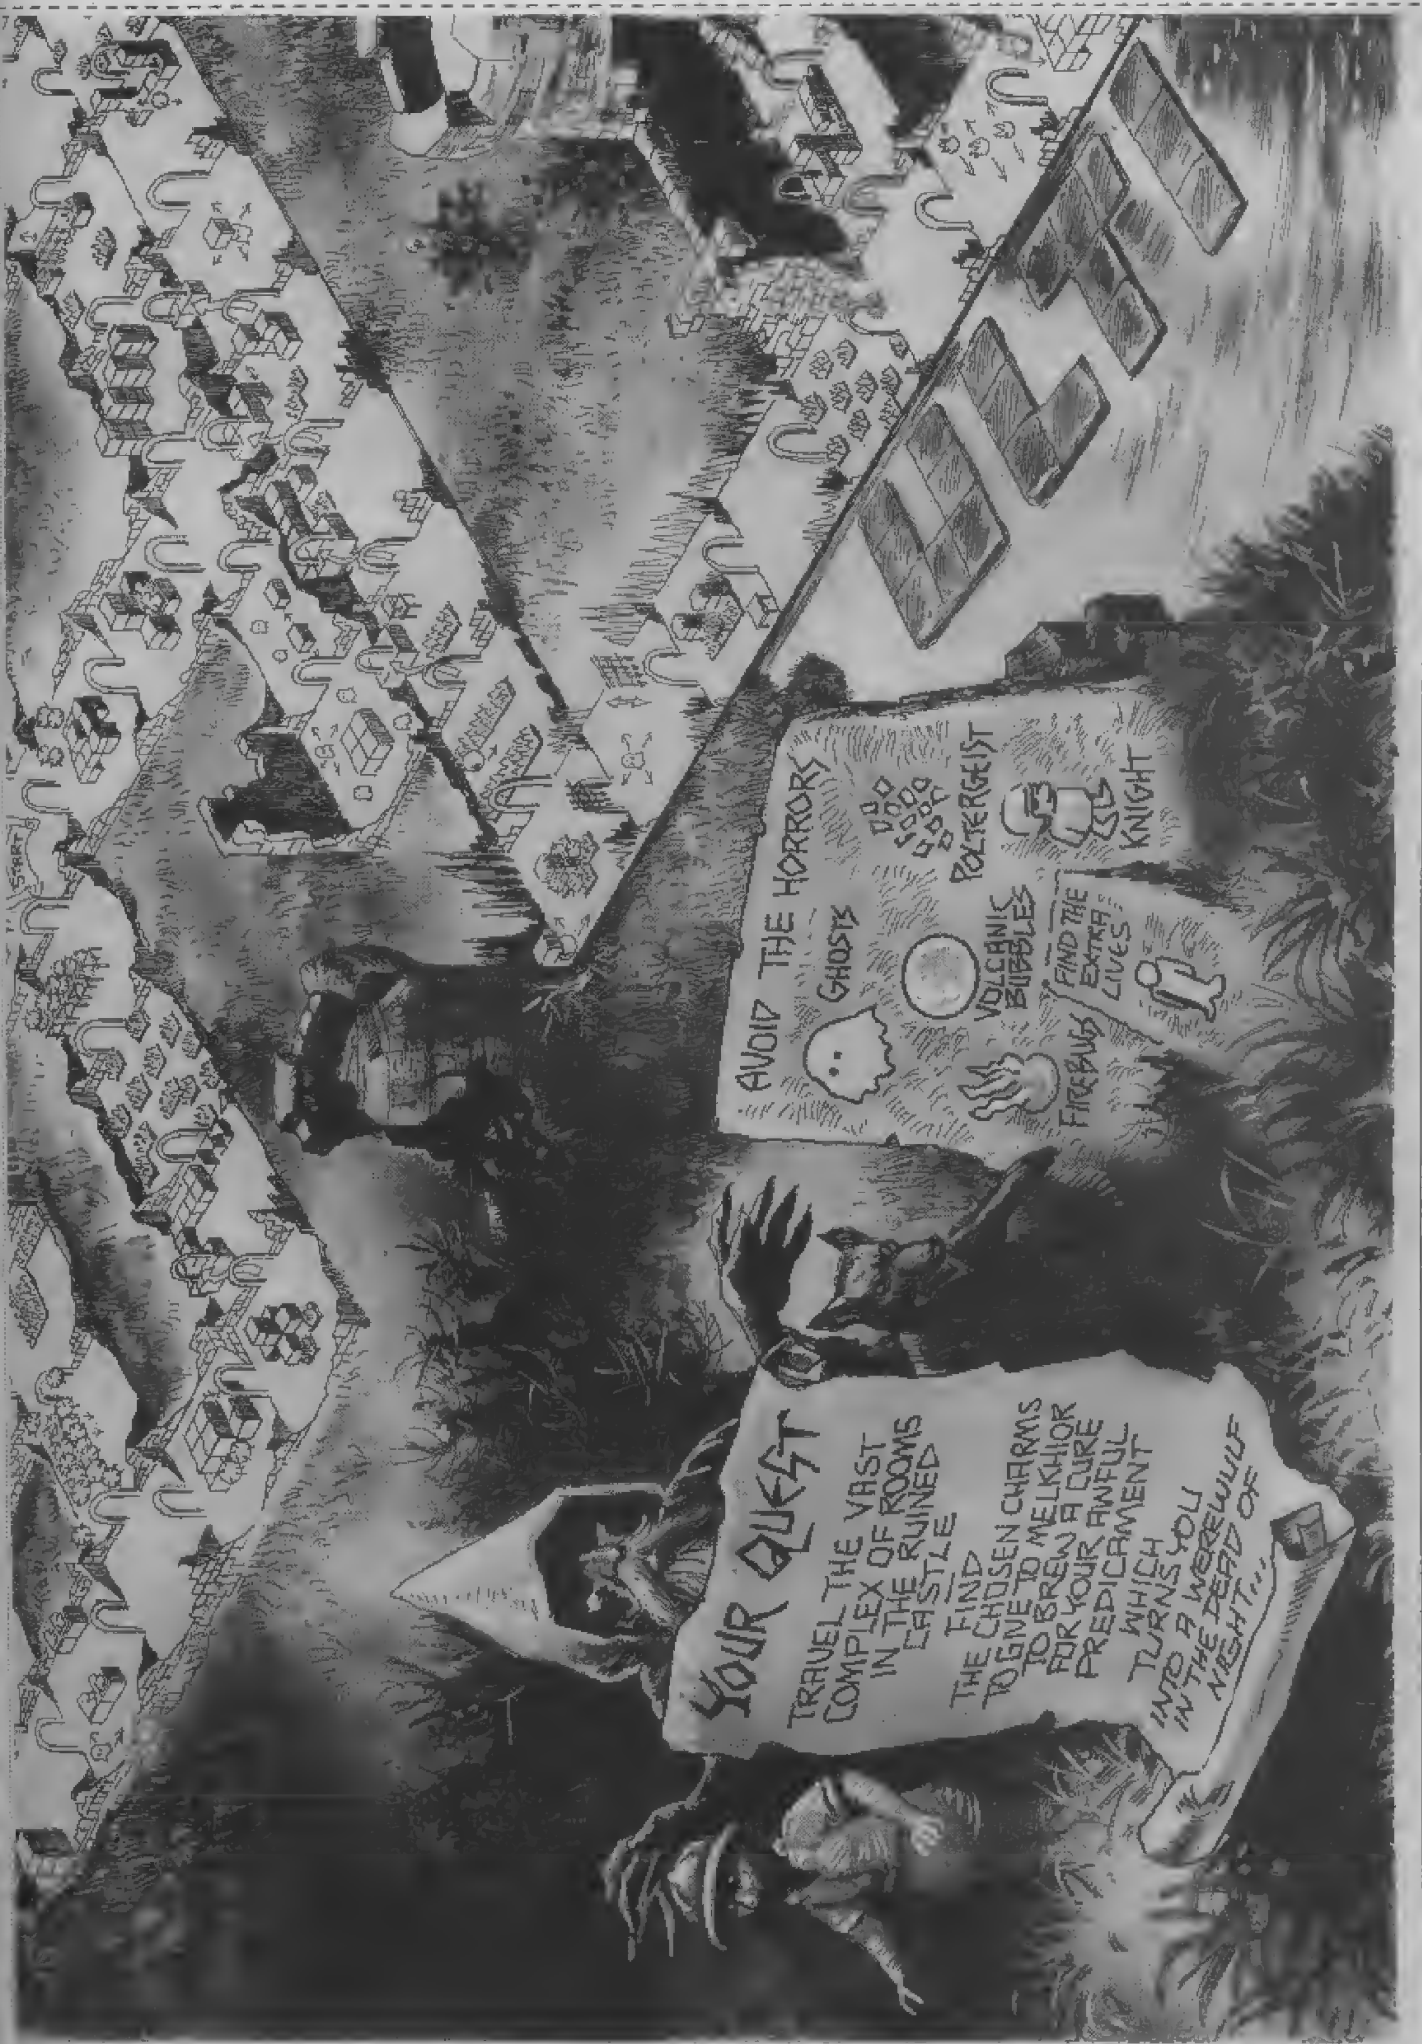 YOUR QUEST
TRAVEL THE VAST
COMPLEX OF ROOMS
IN THE RUINED
CASTLE
FIND
THE CHOSEN CHARMS
TO GIVE TO MELKHIOR
TO BREW A CURE
FOR YOUR AWFUL
PREDICAMENT
WHICH
TURNS YOU
INTO A WEREWULF
IN THE DEAD OF
NIGHT...
AVOID THE HORRORS
GHOSTS
POLTERGEIST
VOLCANIC
BUBBLES
FIREBUGS
KNIGHT
FIND THE
EXTRA
LIVES!
START